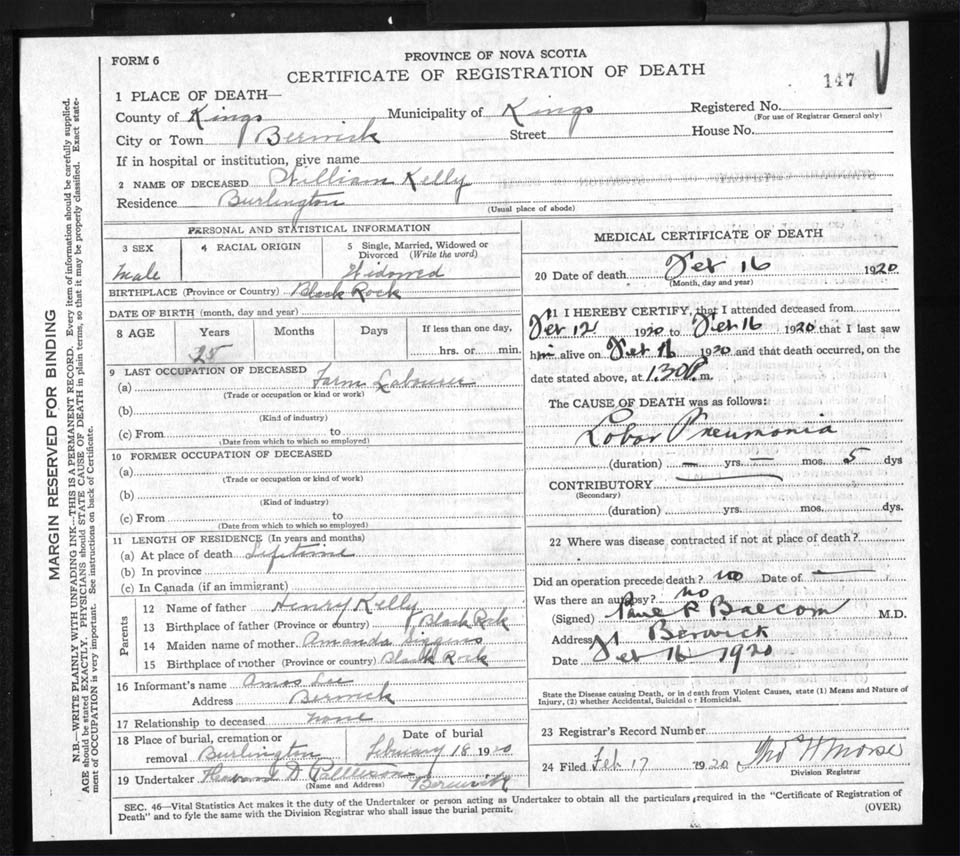 FORM 6
PROVINCE OF NOVA SCOTIA
CERTIFICATE OF REGISTRATION OF DEATH
147
1 PLACE OF DEATH—
County of Kings Municipality of Kings Registered No.
(For use of Registrar General only)
City or Town Berwick Street House No.
If in hospital or institution, give name
2 NAME OF DECEASED William Kelly
Residence Burlington
(Usual place of abode)
PERSONAL AND STATISTICAL INFORMATION
3 SEX 4 RACIAL ORIGIN 5 Single, Married, Widowed or Divorced (Write the word)
Male Widowed
BIRTHPLACE (Province or Country) Black Rock
DATE OF BIRTH (month, day and year)
8 AGE Years Months Days If less than one day,
hrs. or min.
9 LAST OCCUPATION OF DECEASED
(a) Farm Labourer
(Trade or occupation or kind or work)
(b)
(Kind of industry)
(c) From to
(Date from which to which so employed)
10 FORMER OCCUPATION OF DECEASED
(a)
(Trade or occupation or kind of work)
(b)
(Kind of industry)
(c) From to
(Date from which to which so employed)
11 LENGTH OF RESIDENCE (In years and months)
(a) At place of death Lifetime
(b) In province
(c) In Canada (if an immigrant)
Parents
12 Name of father Henry Kelly
13 Birthplace of father (Province or country) Black Rock
14 Maiden name of mother Amanda
15 Birthplace of mother (Province or country) Black Rock
16 Informant's name Amos Lee
Address Berwick
17 Relationship to deceased none
18 Place of burial, cremation or removal Burlington
Date of burial February 18 1920
19 Undertaker
(Name and Address) Berwick
MEDICAL CERTIFICATE OF DEATH
20 Date of death Feb 16 1920
(Month, day and year)
21 I HEREBY CERTIFY, that I attended deceased from
Feb 12 1920 to Feb 16 1920 that I last saw
him alive on Feb 16 1920 and that death occurred, on the
date stated above, at 1.30 P.m.
The CAUSE OF DEATH was as follows:
Lobar Pneumonia
(duration) — yrs. — mos. 5 dys
CONTRIBUTORY
(Secondary)
(duration) yrs. mos. dys.
22 Where was disease contracted if not at place of death?
Did an operation precede death? no Date of —
Was there an autopsy? no
(Signed) Balcom M.D.
Address Berwick
Date Feb 16 1920
State the Disease causing Death, or in death from Violent Causes, state (1) Means and Nature of
Injury, (2) whether Accidental, Suicidal or Homicidal.
23 Registrar's Record Number
24 Filed Feb 17 1920 Tho H Morse
Division Registrar
SEC. 46—Vital Statistics Act makes it the duty of the Undertaker or person acting as Undertaker to obtain all the particulars required in the "Certificate of Registration of
Death" and to fyle the same with the Division Registrar who shall issue the burial permit.
(OVER)
MARGIN RESERVED FOR BINDING
N.B.—WRITE PLAINLY WITH UNFADING INK—THIS IS A PERMANENT RECORD. Every item of information should be carefully supplied.
AGE should be stated EXACTLY. PHYSICIANS should STATE CAUSE OF DEATH in plain terms, so that it may be properly classified. Exact state-
ment of OCCUPATION is very important. See instructions on back of Certificate.